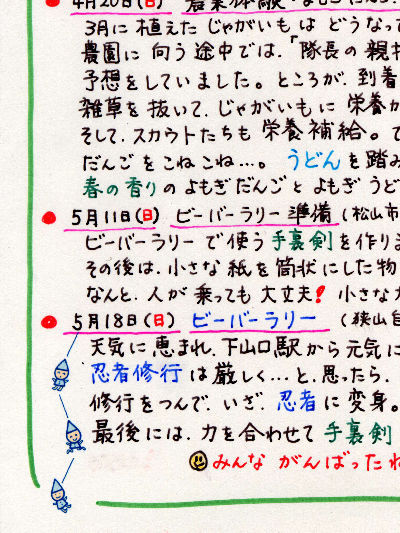 4月20日(日) 農業体験
3月に植えたじゃがいもはどうなって
農園に向う途中では、「隊長の親
予想をしていました。ところが、到着
雑草を抜いて、じゃがいもに栄養
そして、スカウトたちも栄養補給。
だんごをこねこね…。うどんを踏み
春の香りのよもぎだんごとよもぎうど
5月11日(日) ビーバーラリー準備 (松山市
ビーバーラリーで使う手裏剣を作りま
その後は、小さな紙を筒状にした物
なんと、人が乗っても大丈夫! 小さな
5月18日(日) ビーバーラリー (狭山自
天気に恵まれ、下山口駅から元気に
忍者修行は厳しく…と、思ったら、
修行をつんで、いざ、忍者に変身。
最後には、力を合わせて手裏剣
みんながんばったね